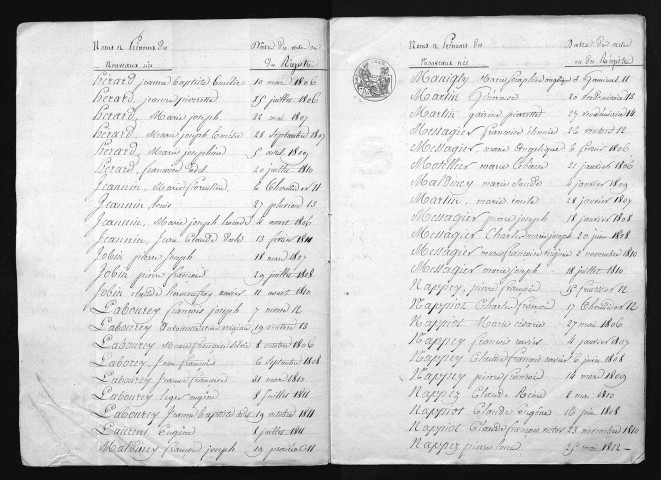 Noms et Prénoms des Nouveaux nés
Date des actes ou du Registre
hérard jeanne Baptiste Emélie 10 mai 1806
hérard, jeanne pierrette 25 juillet 1806
hérard, Marie joseph 22 mai 1807
hérard Marie joseph 28 septembre 1807
hérard, Marie josephine 5 avril 1809
hérard, françoise 20 juillet 1810
Jeannin, Marie florentine 6 11
Jeannin, louis 27 pluviôse 13
Jeannin, Marie joseph 2 mars 1806
Jeannin, Jean Claude 13 février 1811
Jobin pierre joseph 18 mai 1807
Jobin pierre françois 29 juillet 1808
Jobin claude xavier 11 aout 1810
Labourey françois joseph 7 12
Labourey 19 13
Labourey Marie françoise 8 octobre 1806
Laborey Jean françois 6 septembre 1808
Labourey Jeanne françoise 31 mai 1810
Labourey leger eugène 8 juillet 1811
Labourey Jeanne Baptiste 19 octobre 1811
Laurent Eugène 8 juillet 1811
Maldiney françois joseph 19 prairial 11
Noms et Prénoms des Nouveaux nés
Dates des actes ou du Régistre
Manigly Marie josephine angelique 6 11
Martin 20 vendémiaire 13
Martin pierrette 27 vendémiaire 14
Messagier françoise 12
Messagier Marie Angelique 6 février 1806
Motellier marie 21 janvier 1806
Maldiney marie claude 4 janvier 1809
Martin, marie emile 28 janvier 1807
Messagier pierre joseph 18 janvier 1808
Messagier Charles marie joseph 20 juin 1808
Messagier marie françoise 2 novembre 1810
Messagier marie joseph 18 juillet 1810
Nappey, pierre françois 15 12
Nappiot Charles françois 17 12
Nappiot Marie 27 mai 1806
Nappey françois xavier 4 janvier 1807
Nappey Claude françois xavier 6 juin 1808
Nappey pierre françois 14 mai 1809
Nappez Claude 8 mai 1810
Nappiot Claude Eugène 16 juin 1808
Nappiot Claude françois victor 23 novembre 1810
Nappez pierre louis 5 mai 1812